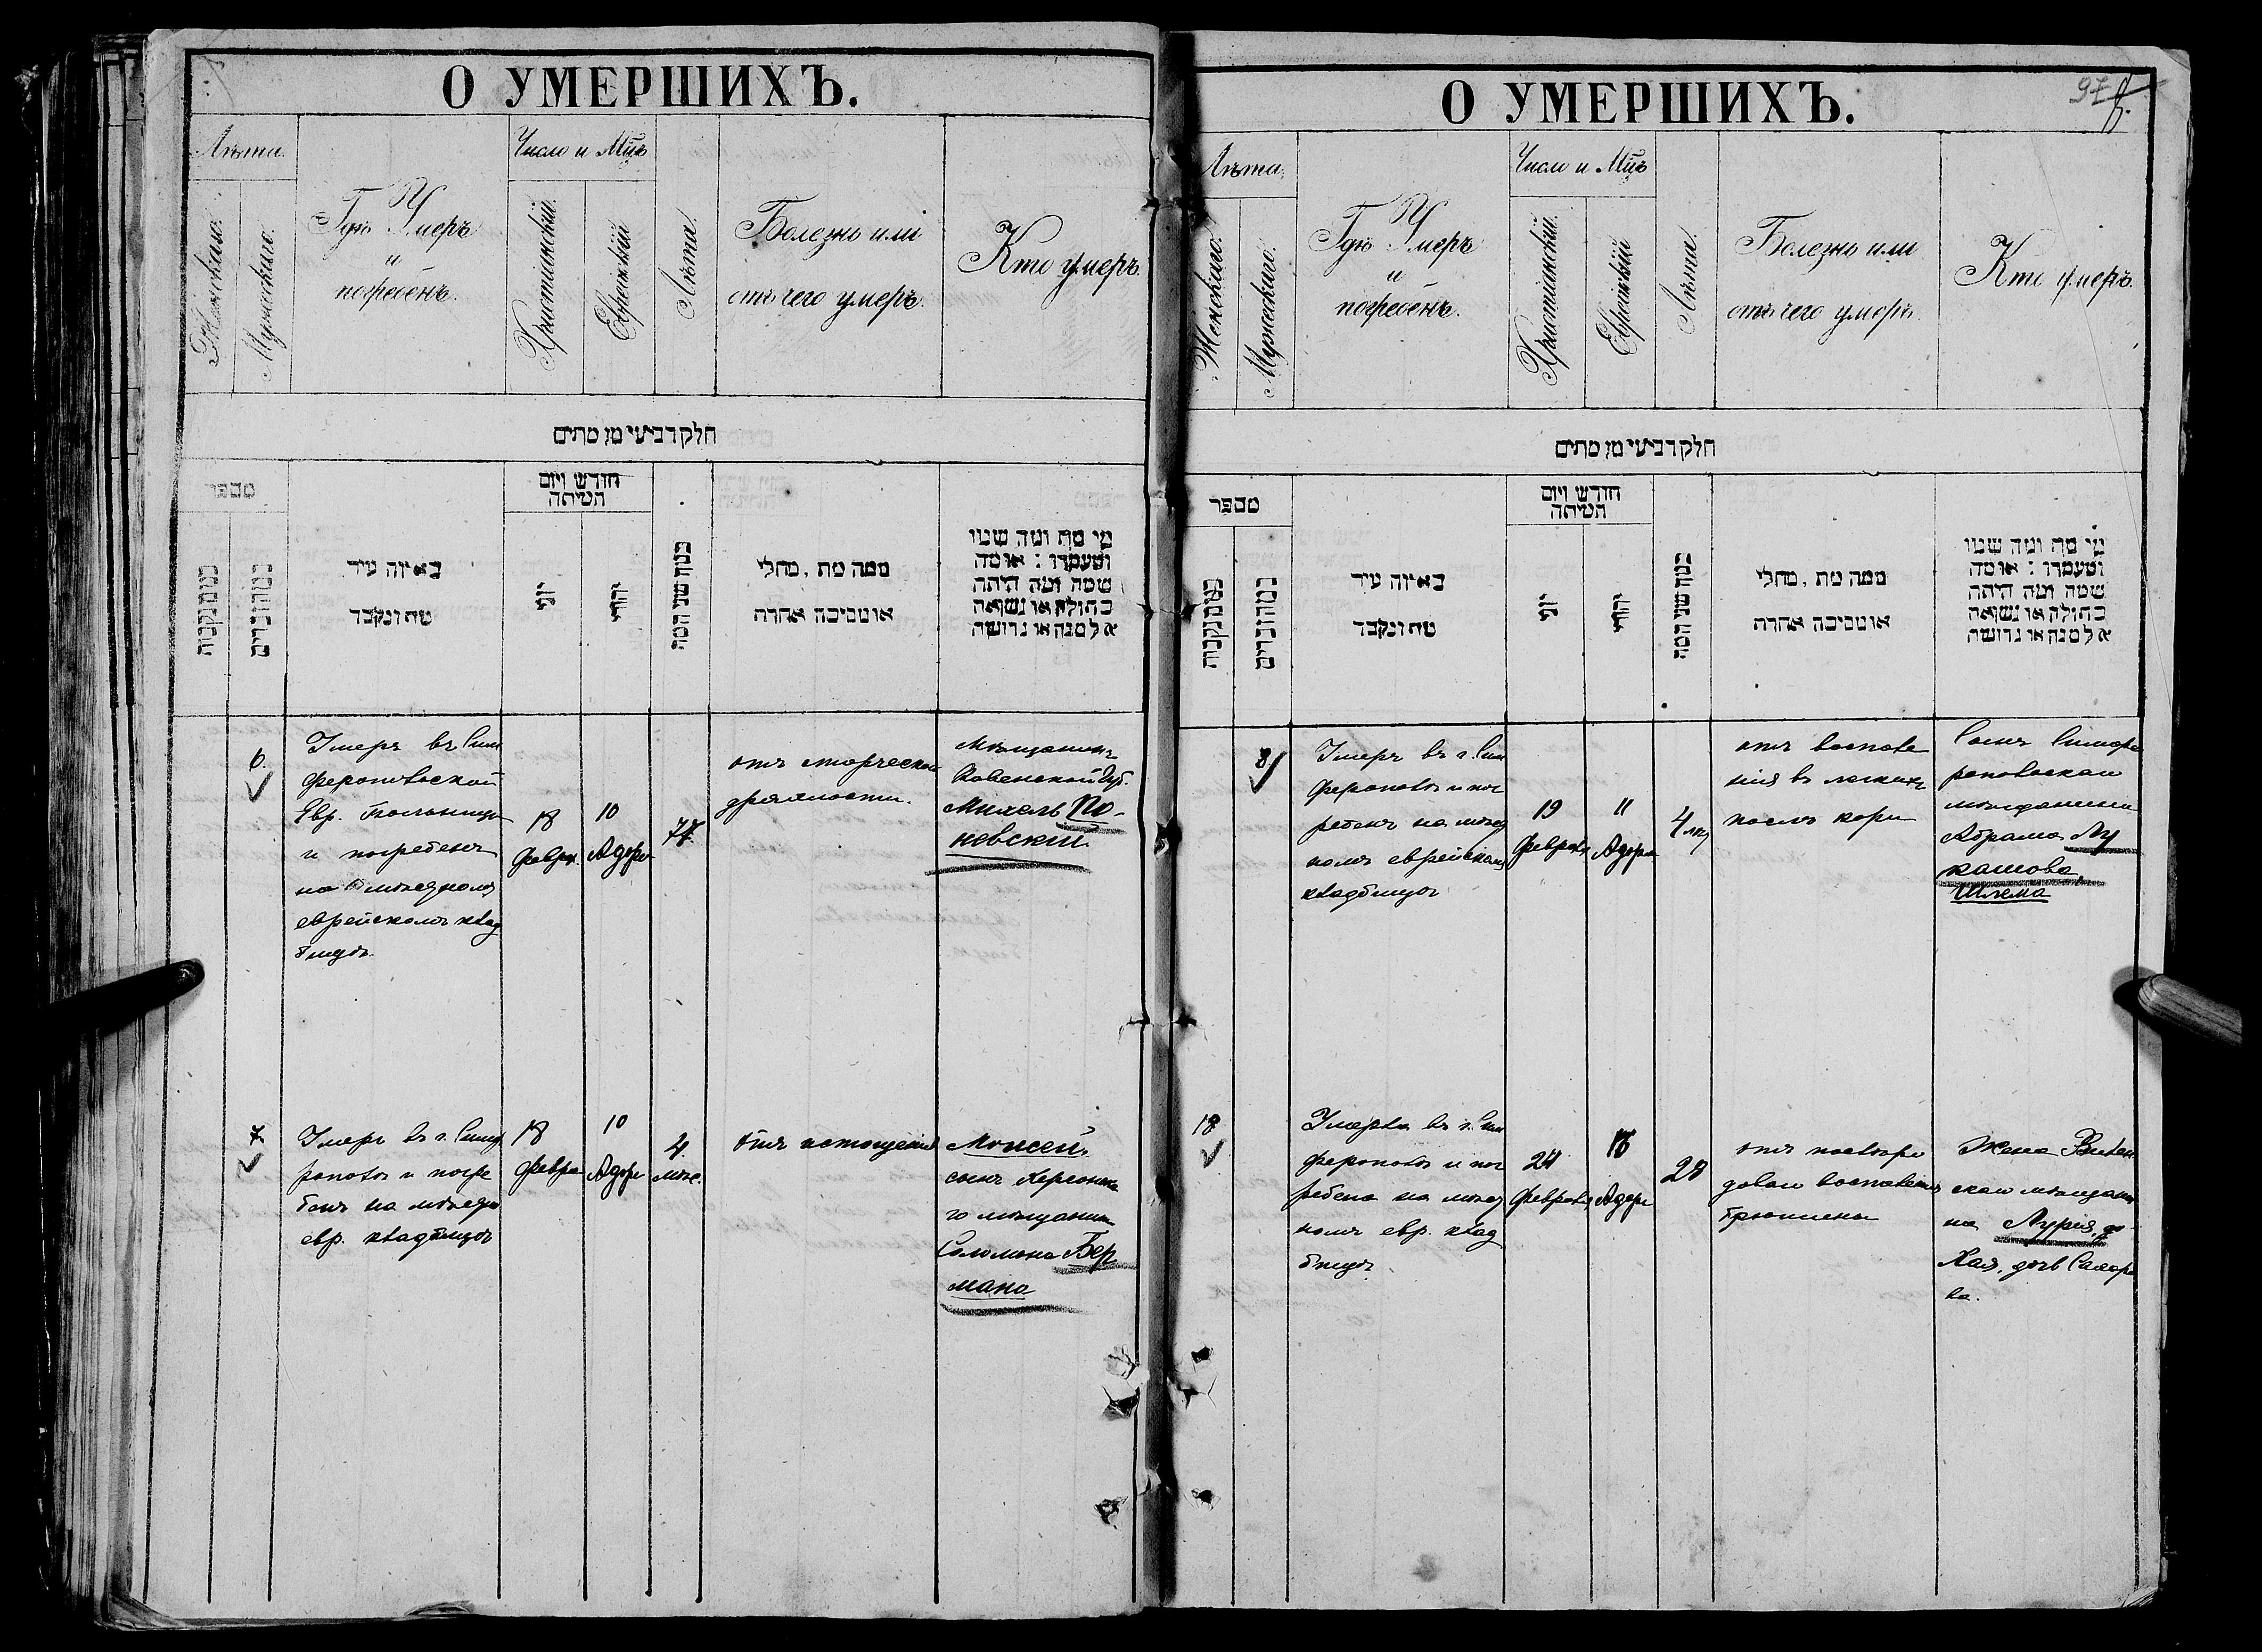 О УМЕРШИХЪ.
Лѣта.
Женскаго.
Мужескаго.
Гдѣ Умеръ
и
погребенъ.
Число и Мцъ
Христіанскій.
Еврейскій
Лѣта.
Болезнь или
отъ чего умеръ.
Кто умеръ.
חלק רביעי מן מתים
מספר
חודש ויום
המיתה
באיזה עיר
מת ונקבר
יוני
יהודי
ממה מת, מחלי
או מסיבה אחרת
מי מת ומה שמו
ומעמדו: או מה
שמה ומה היתה
בתולה או נשואה
אלמנה או גרושה
6.
Умеръ въ Сим
феропольской
Евр. больницѣ
и погребенъ
на мѣстномъ
еврейскомъ клад
бищѣ.
18
Февр.
10
Адоръ
77
отъ старческой
дряхлости.
Мѣщанинъ
Ковенской Губ.
Михель По-
невский.
7
Умеръ въ г. Симфе
рополѣ и погре
бенъ на мѣстн
евр. кладбищѣ
18
Февра
10
Адоръ
4
мѣс.
Отъ истощенія
Моисей,
сынъ Херсонска
го мѣщанина
Соломона Бер
мана
О УМЕРШИХЪ.
97
Лѣта.
Женскаго.
Мужескаго.
Гдѣ Умеръ
и
погребенъ.
Число и Мцъ
Христіанскій.
Еврейскій
Лѣта.
Болезнь или
отъ чего умеръ.
Кто умеръ.
חלק רביעי מן מתים
מספר
חודש ויום
המיתה
באיזה עיר
מת ונקבר
יוני
יהודי
ממה מת, מחלי
או מסיבה אחרת
מי מת ומה שמו
ומעמדו: או מה
שמה ומה היתה
בתולה או נשואה
אלמנה או גרושה
8
Умеръ въ г. Сим
ферополѣ и пог
ребенъ на мѣст
номъ еврейскомъ
кладбищѣ
19
Февраля
11
Адоръ
4 лѣт
отъ воспале
нія въ легкихъ
послѣ кори
Сынъ Симфе
ропольскаго
мѣщанина
Абрама Лу
кашова,
Шлема
18
Умерла въ г. Сим
ферополѣ и пог
ребена на мѣст
номъ евр. клад
бищѣ
24
Февраля
16
Адоръ
28
отъ послѣро
доваго воспаленія
брюшины
Жена Витеб
скаго мѣщани
на Лурія,
Хая, дочь Сахаро
ва.